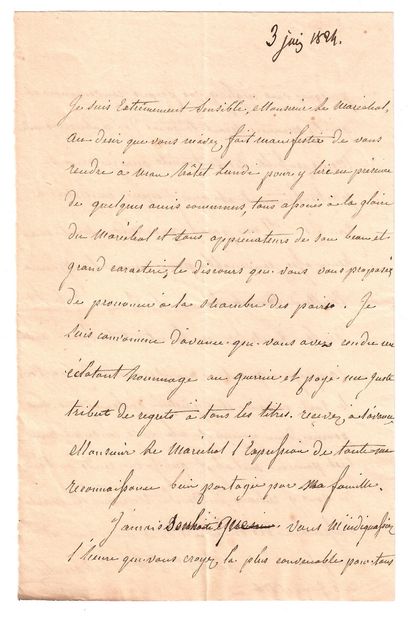 3 juin 1824.
Je suis Extremement Sensible, Monsieur Le Maréchal,
au desir que vous m'avez fait manifester de vous
rendre à mon hôtel Lundi pour y lire en présence
de quelques amis communs, tous associés à la gloire
du Maréchal et tous appréciateurs de son beau et
grand caractère, le discours que vous vous proposez
de prononcer à la Chambre des pairs. Je
suis convaincue d'avance que vous avez rendu un
éclatant hommage au guerrier et payé un juste
tribut de regrets à tous les titres. recevez à l'avance
Monsieur Le Maréchal l'Expression de toute ma
reconnaissance bien partagée par Ma famille.
J'aurais Souhaité que vous m'indiquassiez
l'heure que vous croyez la plus convenable pour tous